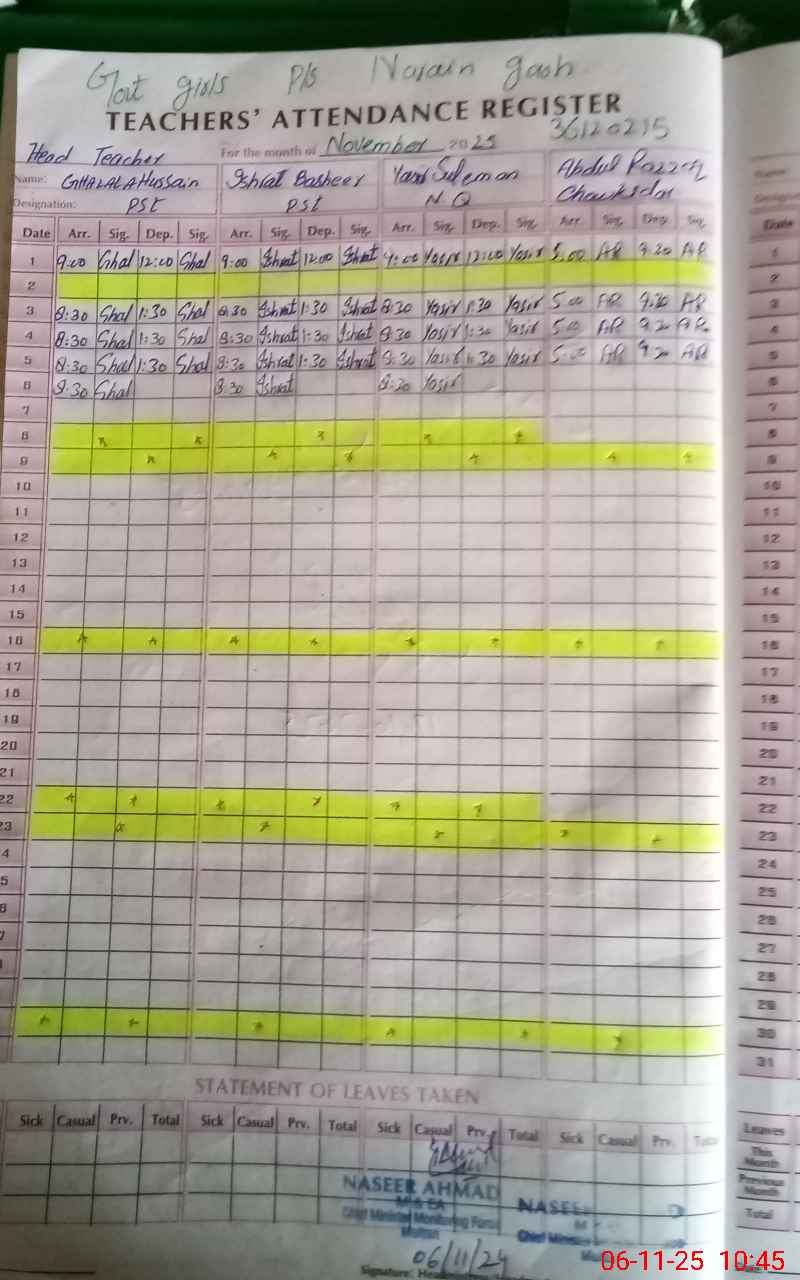 Govt girls P/s Narain gash
TEACHERS' ATTENDANCE REGISTER
36120215
Head Teacher For the month of November 2025
Name: GHALALA Hussain Ishrat Basheer Yasir Suleman Abdul Razzaq
Designation: PST PST N.Q Chowkidar
Date Arr. Sig. Dep. Sig. Arr. Sig. Dep. Sig. Arr. Sig. Dep. Sig. Arr. Sig. Dep. Sig. Date
1 9:00 Ghal 12:00 Ghal 9:00 Ishrat 12:00 Ishrat 9:00 Yasir 12:00 Yasir 5:00 AR 9:20 AR 1
2 2
3 8:30 Ghal 1:30 Ghal 8:30 Ishrat 1:30 Ishrat 8:30 Yasir 1:30 Yasir 5:00 AR 9:20 AR 3
4 8:30 Ghal 1:30 Ghal 8:30 Ishrat 1:30 Ishrat 8:30 Yasir 1:30 Yasir 5:00 AR 9:20 AR 4
5 8:30 Ghal 1:30 Ghal 8:30 Ishrat 1:30 Ishrat 8:30 Yasir 1:30 Yasir 5:00 AR 9:20 AR 5
6 8:30 Ghal 8:30 Ishrat 8:30 Yasir 6
7 7
8 8
9 9
10 10
11 11
12 12
13 13
14 14
15 15
16 16
17 17
18 18
19 19
20 20
21 21
22 22
23 23
4 24
5 25
6 26
7 27
28
29
30
31
STATEMENT OF LEAVES TAKEN
Sick Casual Prv. Total Sick Casual Prv. Total Sick Casual Prv. Total Sick Casual Prv. Total Leaves
This Month
Previous Month
Total
NASEER AHMAD NASEE
MEA
Chief Minister Monitoring Force Chief Minis
Multan
06/11/24
Signature:
06-11-25 10:45